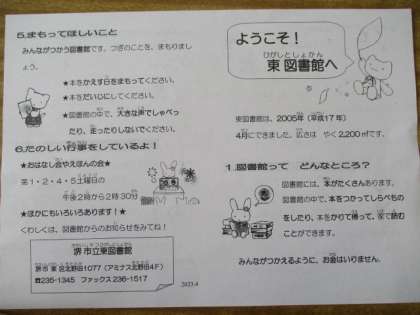 5.まもってほしいこと
みんながつかう図書館です。つぎのことを、まもりまし
ょう。
★本をかえす日をまもってください。
★本をだいじにしてください。
★図書館の中で、大きな声でしゃべっ
たり、走ったりしないでください。
6.たのしい行事をしているよ!
★おはなし会やえほんの会★
第1・2・4・5土曜日の
午後2時から2時30分
★ほかにもいろいろあります!★
くわしくは、図書館からのお知らせをみてね!
堺市立東図書館
堺市東区北野田1077(アミナス北野田4F)
☎235-1345 ファックス236-1517
2023.4
ようこそ!
東図書館へ
東図書館は、2005年(平成17年)
4月にできました。広さは やく2,200㎡です。
1.図書館って どんなところ?
図書館には、本がたくさんあります。
図書館の中で、本をつかってしらべもの
をしたり、本をかりて帰って、家で読む
ことができます。
みんながつかえるように、お金はいりません。